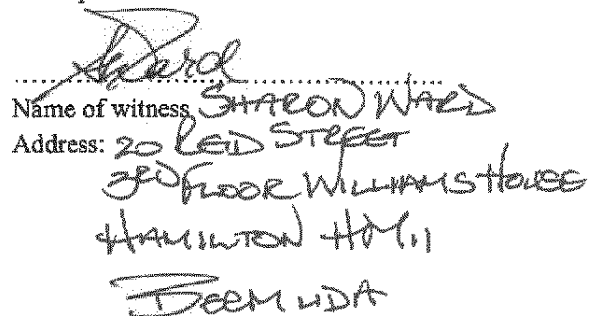 SWard
Name of witness SHARON WARD
Address: 20 REID STREET
3RD FLOOR WILLIAMS HOUSE
HAMILTON HM11
BERMUDA